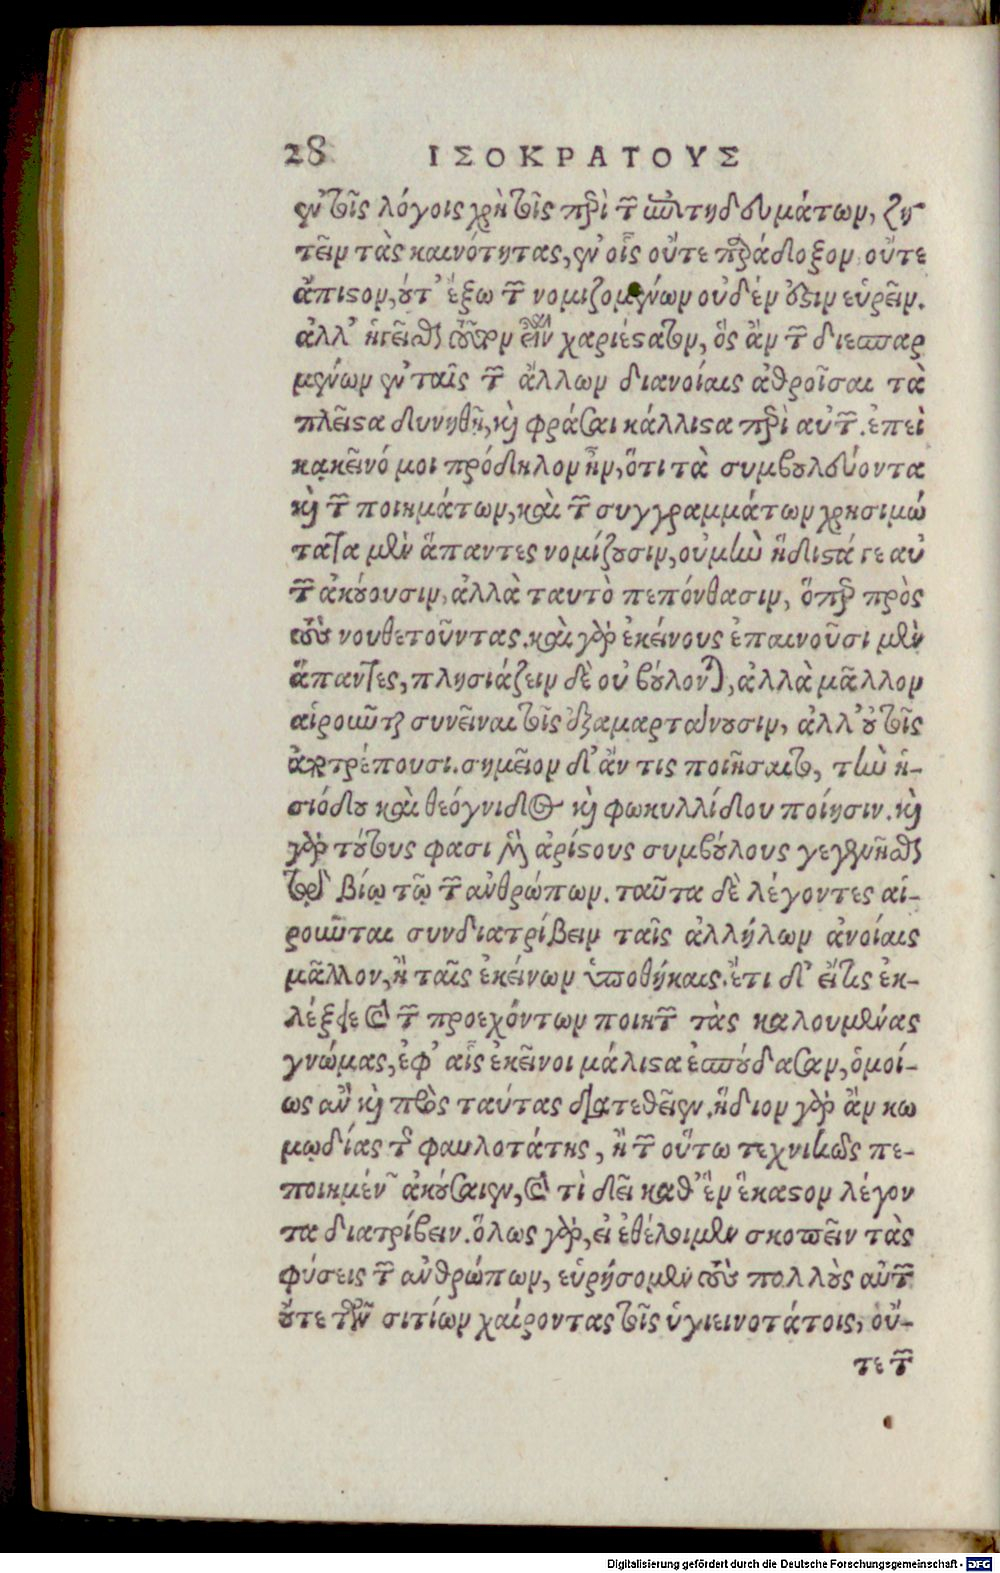 28 ΙΣΟΚΡΑΤΟΥΣ
ἐν τοῖς λόγοις χρὴ τοῖς περὶ τῶν ἐπιτηδευμάτων, ζη-
τεῖν τὰς καινότητας, ἐν οἷς οὔτε παράδοξον, οὔτε
ἄπιστον, οὔτ' ἔξω τῶν νομιζομένων οὐδέν ἔξεστιν εὑρεῖν.
ἀλλ' ἡγεῖσθαι τοῦτον εἶναι χαριέστατον, ὃς ἂν τῶν διεσπαρ
μένων ἐν ταῖς τῶν ἄλλων διανοίαις ἀθροῖσαι τὰ
πλεῖστα δυνηθῇ, καὶ φράσαι κάλλιστα περὶ αὐτῶν. ἐπεὶ
κᾳκεῖνό μοι πρόδηλον ἦν, ὅτι τὰ συμβουλεύοντα
καὶ τῶν ποιημάτων, καὶ τῶν συγγραμμάτων χρησιμώ
τατα μὲν ἅπαντες νομίζουσιν, οὐ μὴν ἥδιστά γε αὐ
τῶν ἀκούουσιν, ἀλλὰ ταυτὸ πεπόνθασιν, ὅπερ πρὸς
τοὺς νουθετοῦντας. καὶ γὰρ ἐκείνους ἐπαινοῦσι μὲν
ἅπαντες, πλησιάζειν δὲ οὐ βούλονται, ἀλλὰ μᾶλλον
αἱροῦνται συνεῖναι τοῖς ἐξαμαρτάνουσιν, ἀλλ' οὐ τοῖς
ἀποτρέπουσι. σημεῖον δ' ἄν τις ποιήσαιτο, τὴν ἡ-
σιόδου καὶ θεόγνιδος καὶ φωκυλλίδου ποίησιν. καὶ
γὰρ τούτους φασι μὲν ἀρίστους συμβούλους γεγενῆσθαι
τῷ βίῳ τῷ τῶν ἀνθρώπων. ταῦτα δὲ λέγοντες αἱ-
ροῦνται συνδιατρίβειν ταῖς ἀλλήλων ἀνοίαις
μᾶλλον, ἢ ταῖς ἐκείνων ὑποθήκαις. ἔτι δ' εἴ τις ἐκ-
λέξειε καὶ τῶν προεχόντων ποιητῶν τὰς καλουμένας
γνώμας, ἐφ' αἷς ἐκεῖνοι μάλιστα ἐσπούδασαν, ὁμοί-
ως ἂν καὶ πρὸς ταύτας διατεθεῖεν. ἥδιον γὰρ ἂν κω
μῳδίας τῆς φαυλοτάτης, ἢ τῶν οὕτω τεχνικῶς πε-
ποιημένων ἀκούσαιεν, καὶ τὶ δεῖ καθ' ἓν ἕκαστον λέγον
τα διατρίβειν. ὅλως γὰρ, εἰ ἐθέλοιμεν σκοπεῖν τὰς
φύσεις τῶν ἀνθρώπων, εὑρήσομεν τοὺς πολλοὺς αὐτῶν
οὔτε τῶν σιτίων χαίροντας τοῖς ὑγιεινοτάτοις, οὔ-
τε τῶν
Digitalisierung gefördert durch die Deutsche Forschungsgemeinschaft - DFG